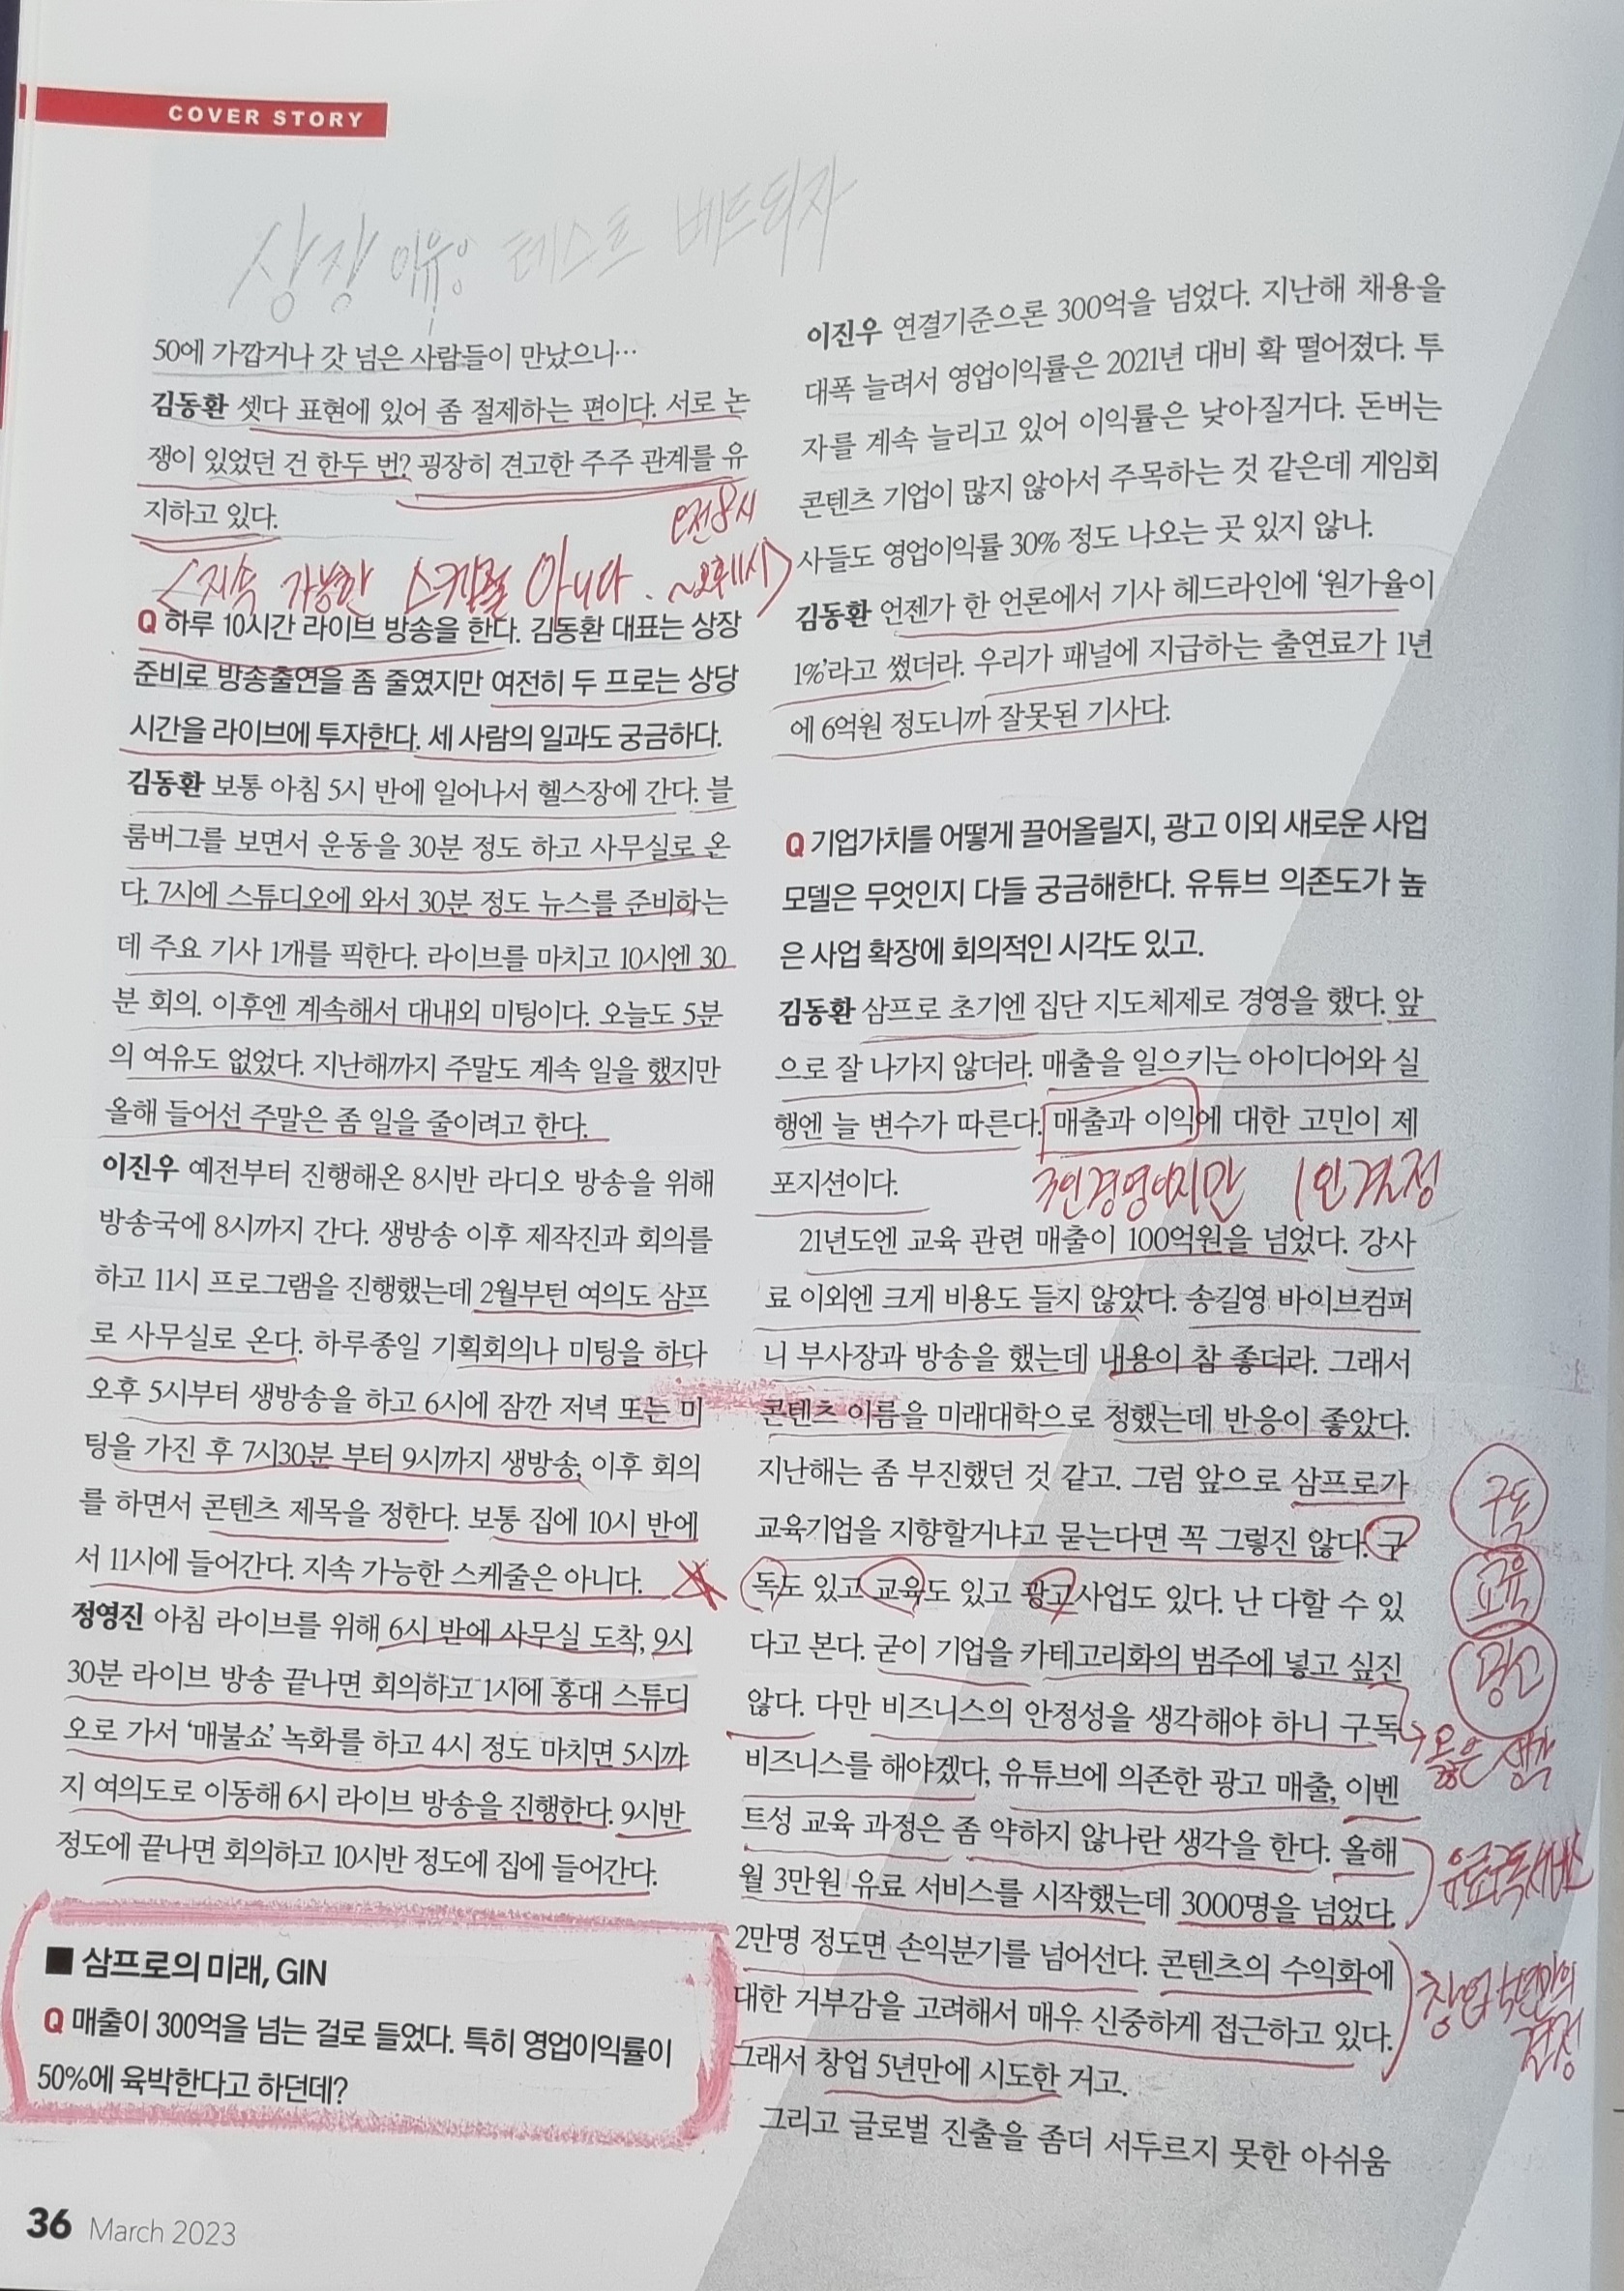 COVER STORY
상장 이유: 테스트 베드되자
50에 가깝거나 갓 넘은 사람들이 만났으니…
김동환 셋다 표현에 있어 좀 절제하는 편이다. 서로 논
쟁이 있었던 건 한두 번? 굉장히 견고한 주주 관계를 유
지하고 있다.
오전8시
<지속 가능한 스케줄 아니다. ~오후11시>
Q 하루 10시간 라이브 방송을 한다. 김동환 대표는 상장
준비로 방송출연을 좀 줄였지만 여전히 두 프로는 상당
시간을 라이브에 투자한다. 세 사람의 일과도 궁금하다.
김동환 보통 아침 5시 반에 일어나서 헬스장에 간다. 블
룸버그를 보면서 운동을 30분 정도 하고 사무실로 온
다. 7시에 스튜디오에 와서 30분 정도 뉴스를 준비하는
데 주요 기사 1개를 픽한다. 라이브를 마치고 10시엔 30
분 회의. 이후엔 계속해서 대내외 미팅이다. 오늘도 5분
의 여유도 없었다. 지난해까지 주말도 계속 일을 했지만
올해 들어선 주말은 좀 일을 줄이려고 한다.
이진우 예전부터 진행해온 8시반 라디오 방송을 위해
방송국에 8시까지 간다. 생방송 이후 제작진과 회의를
하고 11시 프로그램을 진행했는데 2월부턴 여의도 삼프
로 사무실로 온다. 하루종일 기획회의나 미팅을 하다
오후 5시부터 생방송을 하고 6시에 잠깐 저녁 또는 미
팅을 가진 후 7시30분 부터 9시까지 생방송, 이후 회의
를 하면서 콘텐츠 제목을 정한다. 보통 집에 10시 반에
서 11시에 들어간다. 지속 가능한 스케줄은 아니다.
정영진 아침 라이브를 위해 6시 반에 사무실 도착, 9시
30분 라이브 방송 끝나면 회의하고 1시에 홍대 스튜디
오로 가서 ‘매불쇼’ 녹화를 하고 4시 정도 마치면 5시까
지 여의도로 이동해 6시 라이브 방송을 진행한다. 9시반
정도에 끝나면 회의하고 10시반 정도에 집에 들어간다.
■ 삼프로의 미래, GIN
Q 매출이 300억을 넘는 걸로 들었다. 특히 영업이익률이
50%에 육박한다고 하던데?
이진우 연결기준으론 300억을 넘었다. 지난해 채용을
대폭 늘려서 영업이익률은 2021년 대비 확 떨어졌다. 투
자를 계속 늘리고 있어 이익률은 낮아질거다. 돈버는
콘텐츠 기업이 많지 않아서 주목하는 것 같은데 게임회
사들도 영업이익률 30% 정도 나오는 곳 있지 않나.
김동환 언젠가 한 언론에서 기사 헤드라인에 ‘원가율이
1%’라고 썼더라. 우리가 패널에 지급하는 출연료가 1년
에 6억원 정도니까 잘못된 기사다.
Q 기업가치를 어떻게 끌어올릴지, 광고 이외 새로운 사업
모델은 무엇인지 다들 궁금해한다. 유튜브 의존도가 높
은 사업 확장에 회의적인 시각도 있고.
김동환 삼프로 초기엔 집단 지도체제로 경영을 했다. 앞
으로 잘 나가지 않더라. 매출을 일으키는 아이디어와 실
행엔 늘 변수가 따른다. 매출과 이익에 대한 고민이 제
포지션이다.
3인경영이지만 1인결정
21년도엔 교육 관련 매출이 100억원을 넘었다. 강사
료 이외엔 크게 비용도 들지 않았다. 송길영 바이브컴퍼
니 부사장과 방송을 했는데 내용이 참 좋더라. 그래서
콘텐츠 이름을 미래대학으로 정했는데 반응이 좋았다.
지난해는 좀 부진했던 것 같고. 그럼 앞으로 삼프로가
교육기업을 지향할거냐고 묻는다면 꼭 그렇진 않다. 구
독도 있고 교육도 있고 광고사업도 있다. 난 다할 수 있
다고 본다. 굳이 기업을 카테고리화의 범주에 넣고 싶진
않다. 다만 비즈니스의 안정성을 생각해야 하니 구독
비즈니스를 해야겠다, 유튜브에 의존한 광고 매출, 이벤
트성 교육 과정은 좀 약하지 않나란 생각을 한다. 올해
월 3만원 유료 서비스를 시작했는데 3000명을 넘었다.
2만명 정도면 손익분기를 넘어선다. 콘텐츠의 수익화에
대한 거부감을 고려해서 매우 신중하게 접근하고 있다.
그래서 창업 5년만에 시도한 거고.
그리고 글로벌 진출을 좀더 서두르지 못한 아쉬움
구독
교육
광고
옳은 생각
유료구독서비스
창업 5년만의
결정
36 March 2023